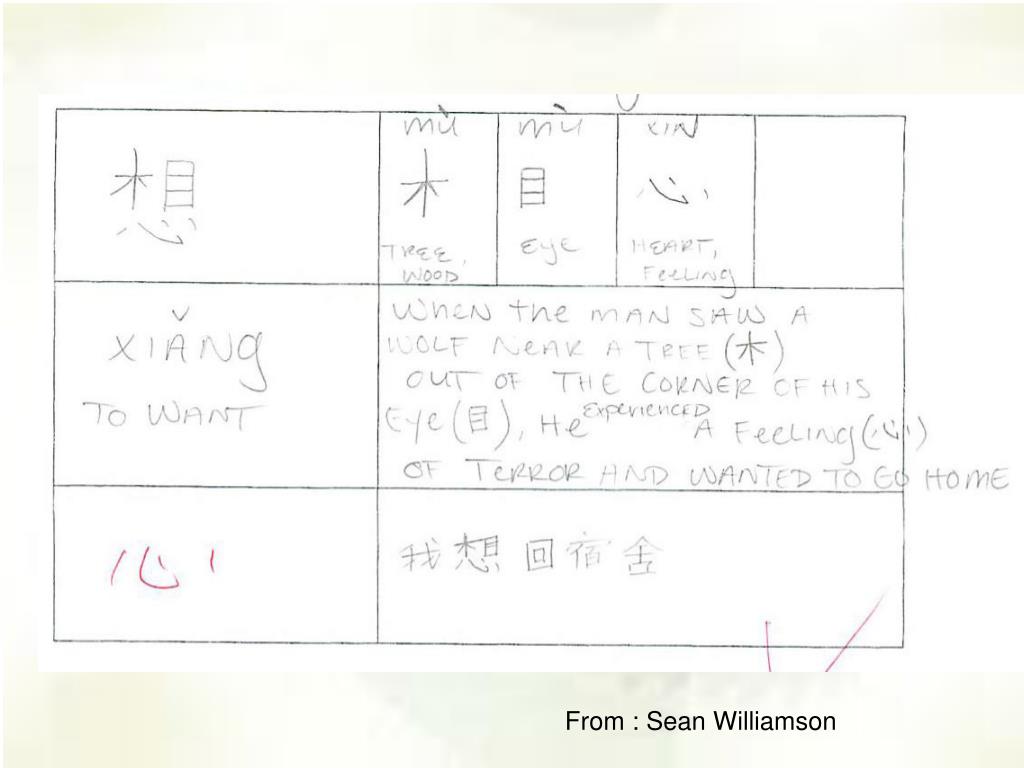 想
mù mù XIN
木 目 心
TREE, WOOD
EyE
HEART, FEELING
XIǍNG
TO WANT
WHEN the MAN SAW A
WOLF NEAR A TREE (木)
OUT OF THE CORNER OF HIS
EyE (目), HE EXPERIENCED A FEELING (心)
OF TERROR AND WANTED TO GO HOME
心
我想回宿舍
From : Sean Williamson